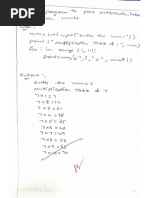 program to print multiplication table
num = int(input("enter the num = "))
print("multiplication Table of", num)
for i in range(1, 11):
print(num, "x", i, "=", num*i)
Output :-
Enter the num = 7
Multiplication Table of 7
7 x 1 = 7
7 x 2 = 14
7 x 3 = 21
7 x 4 = 28
7 x 5 = 35
7 x 6 = 42
7 x 7 = 49
7 x 8 = 56
7 x 9 = 63
7 x 10 = 70